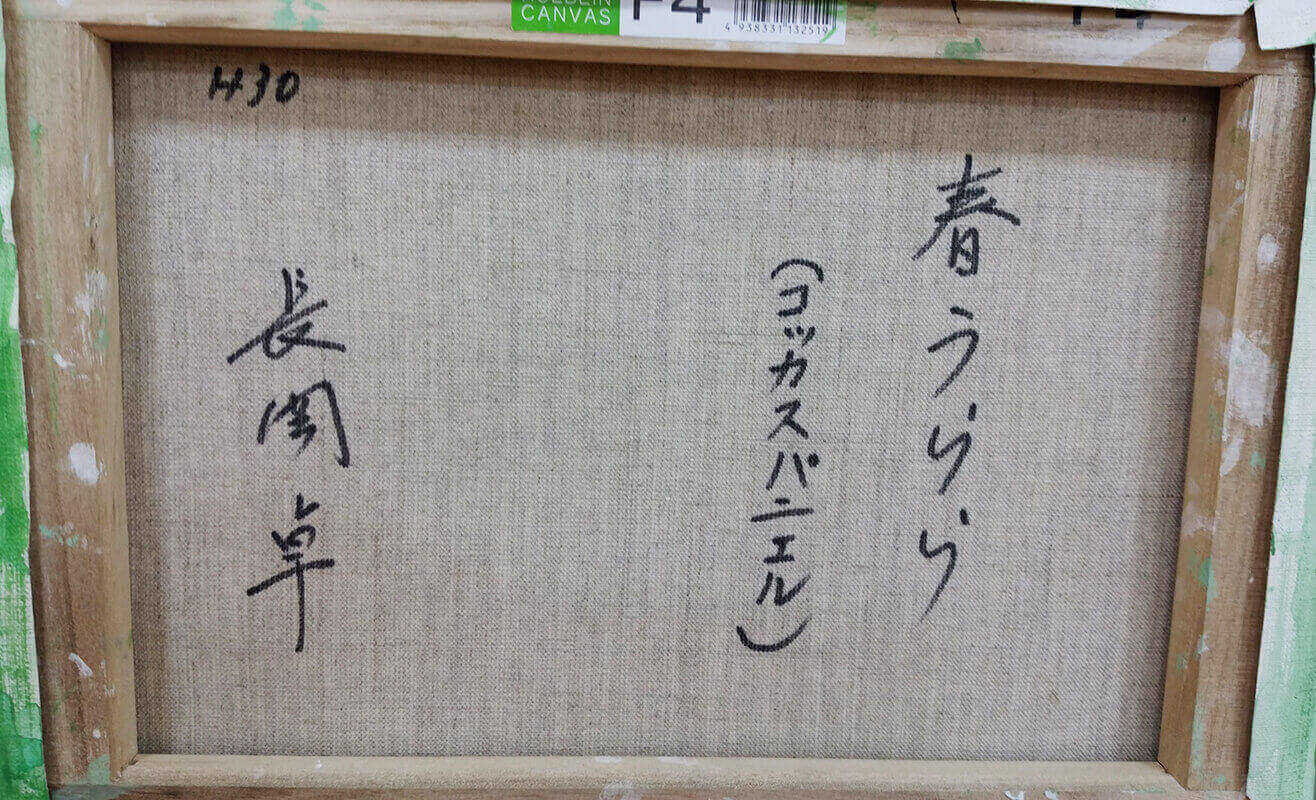 CANVAS
F4
4 938331 132519
H30
春うらら
(コッカスパニエル)
長関卓